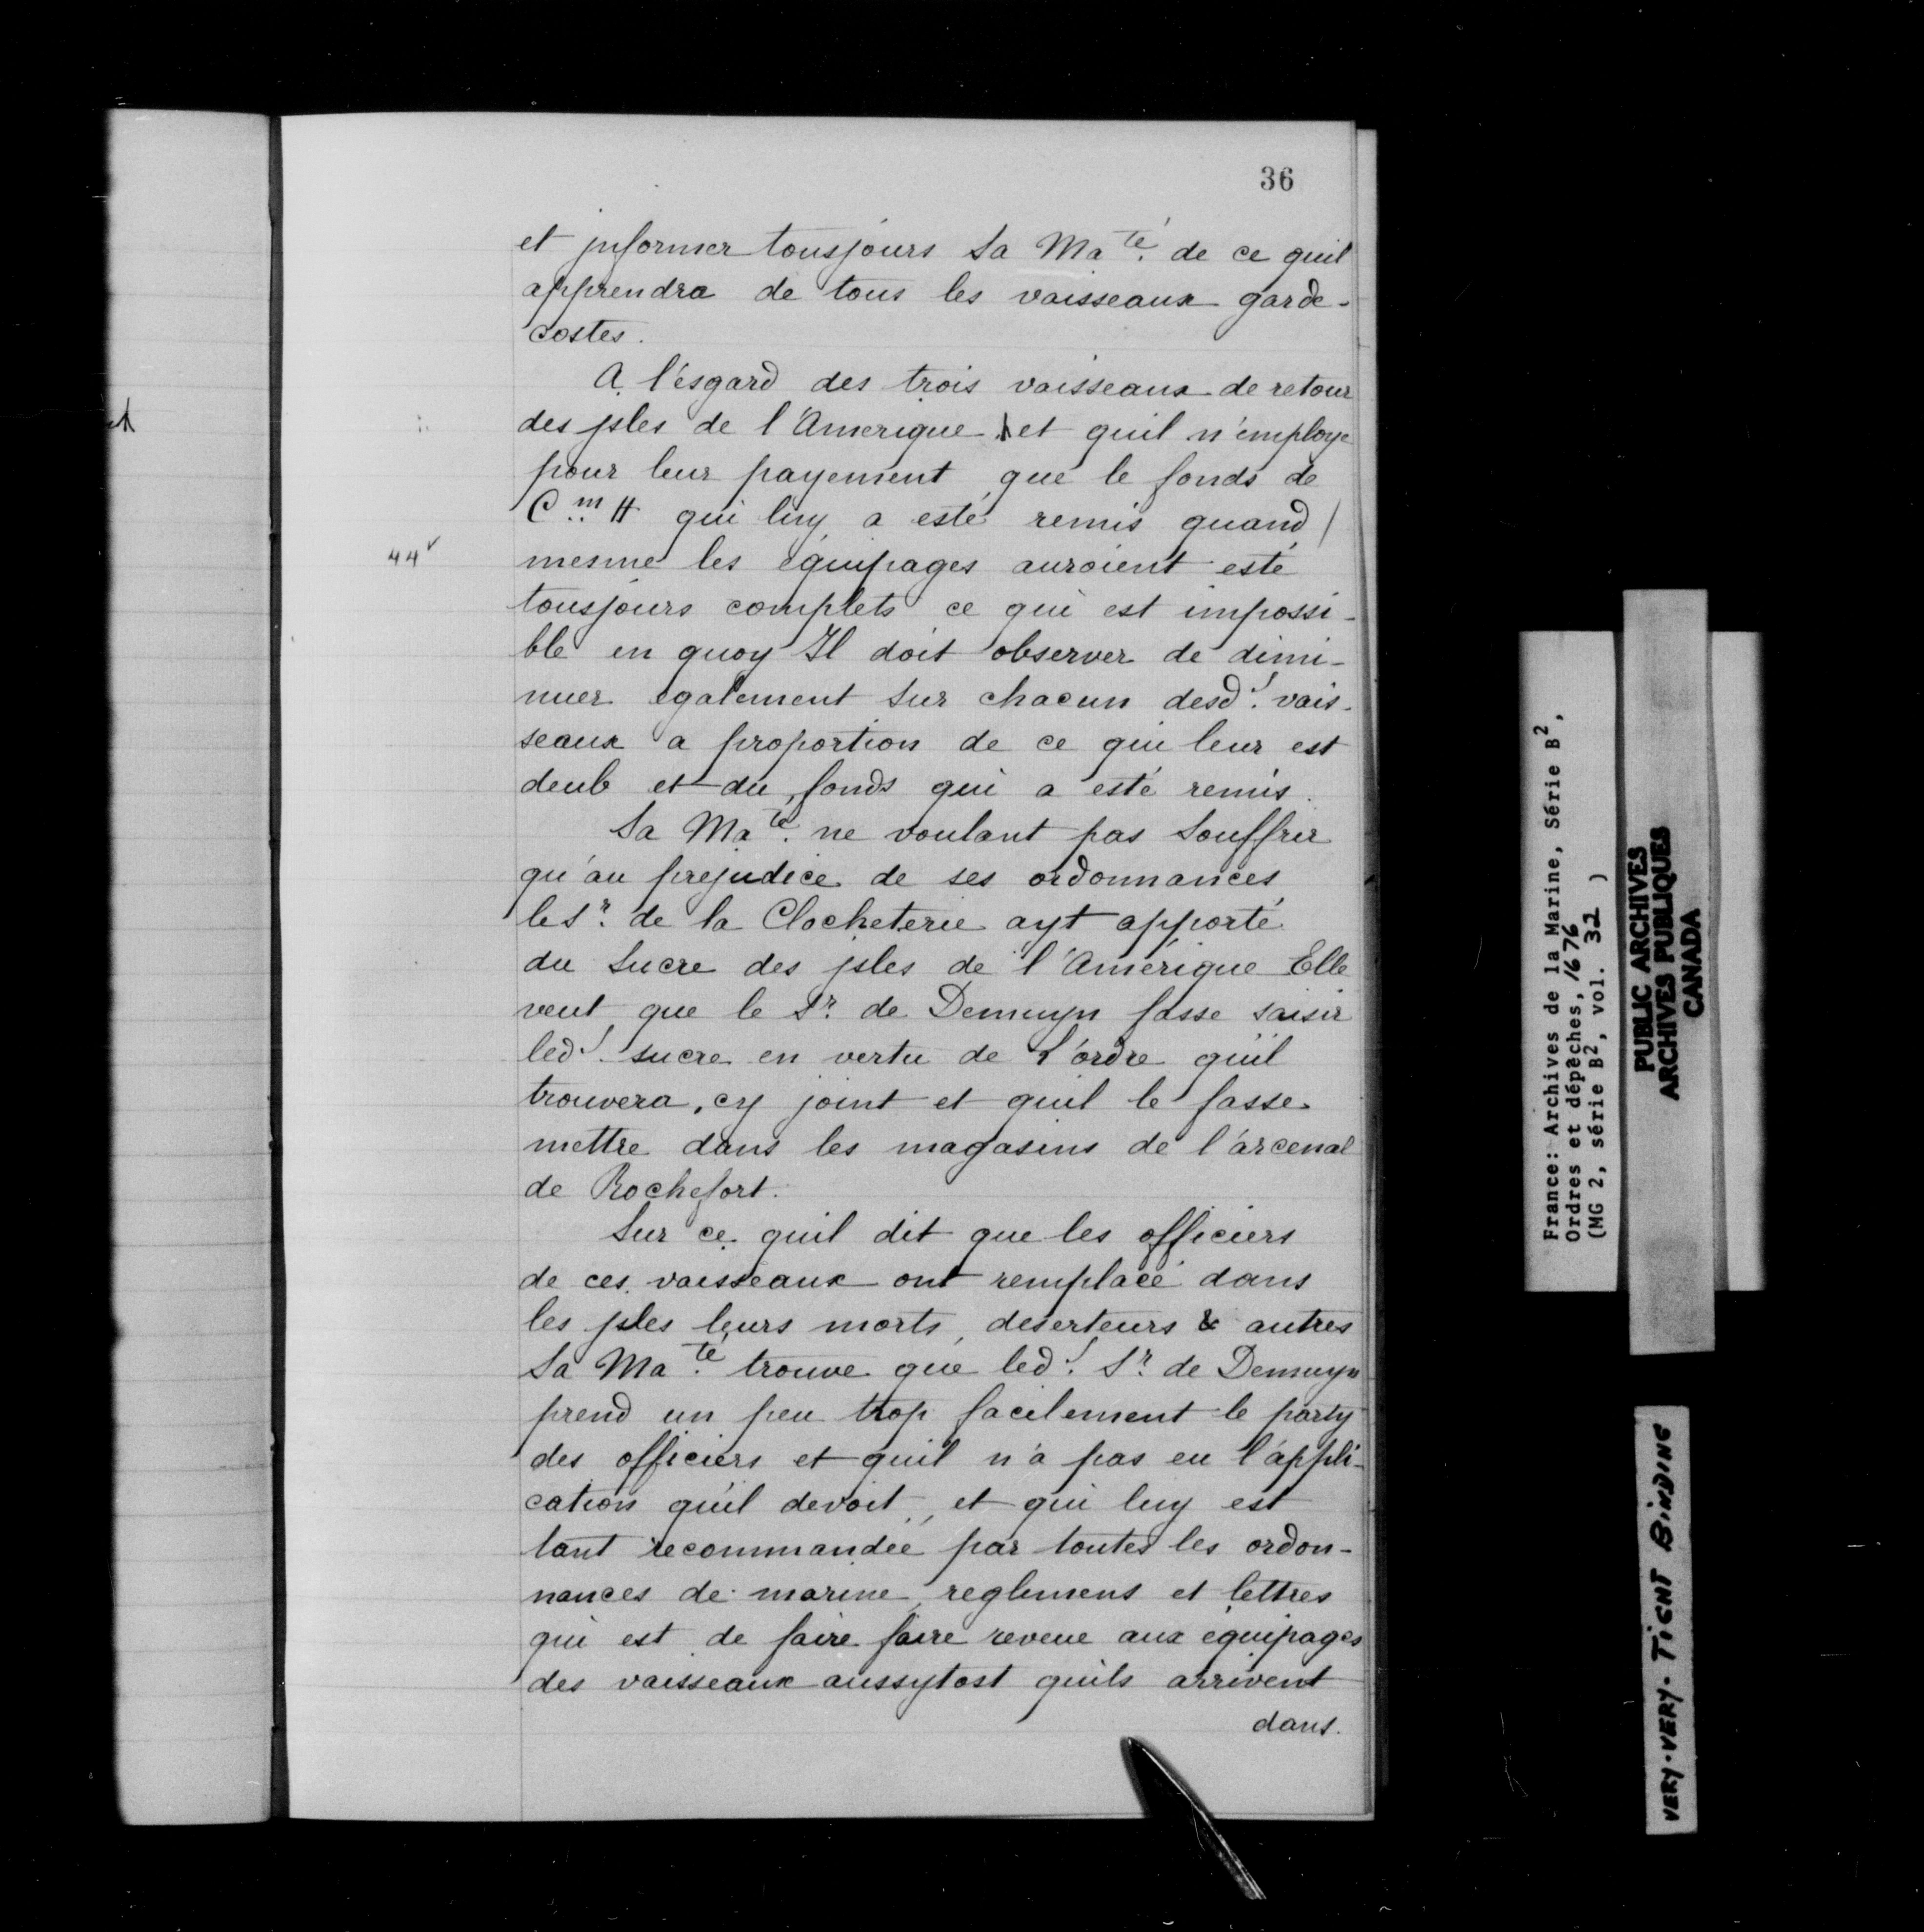 36
et jnformer tousjours Sa Ma.té de ce quil
apprendra de tous les vaisseaux garde-
costes.
A l'ésgard des trois vaisseaux de retour
des jsles de l'Amerique et quil n'employe
pour leur payement que le fonds de
C.m ₶ qui luy a esté remis quand /
44v
mesme les équipages auroient esté
tousjours complets ce qui est impossi-
ble en quoy Il doit observer de dimi-
nuer egalement sur chacun desd. vais-
seaux a proportion de ce qui leur est
deub et du fonds qui a esté remis.
Sa Ma.té ne voulant pas souffrir
qu'au prejudice de ses ordonnances
le Sr. de la Clocheterie ayt apporté
du sucre des jsles de l'Amérique Elle
veut que le Sr. de Demuyn fasse saisir
led. sucre en vertu de l'ordre qu'il
trouvera, cy joint et quil le fasse
mettre dans les magasins de l'arcenal
de Rochefort.
Sur ce quil dit que les officiers
de ces vaisseaux ont remplacé dans
les jsles leurs morts, deserteurs & autres
Sa Ma.té trouve que led. Sr. de Demuyn
prend un peu trop facilement le party
des officiers et quil n'a pas eu l'appli-
cation qu'il devoit, et qui luy est
tant recommandée par toutes les ordon-
nances de marine, reglemens et lettres
qui est de faire faire reveue aux équipages
des vaisseaux aussytost qu'ils arrivent
dans.
France: Archives de la Marine, Série B2,
Ordres et dépêches, 1676
(MG 2, série B2, vol. 32 )
PUBLIC ARCHIVES
ARCHIVES PUBLIQUES
CANADA
VERY-VERY-TIGHT BINDING